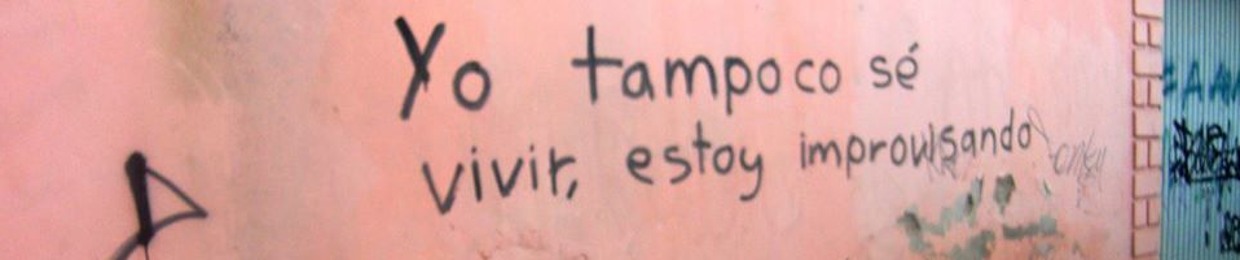 Yo tampoco sé
vivir, estoy improvisando